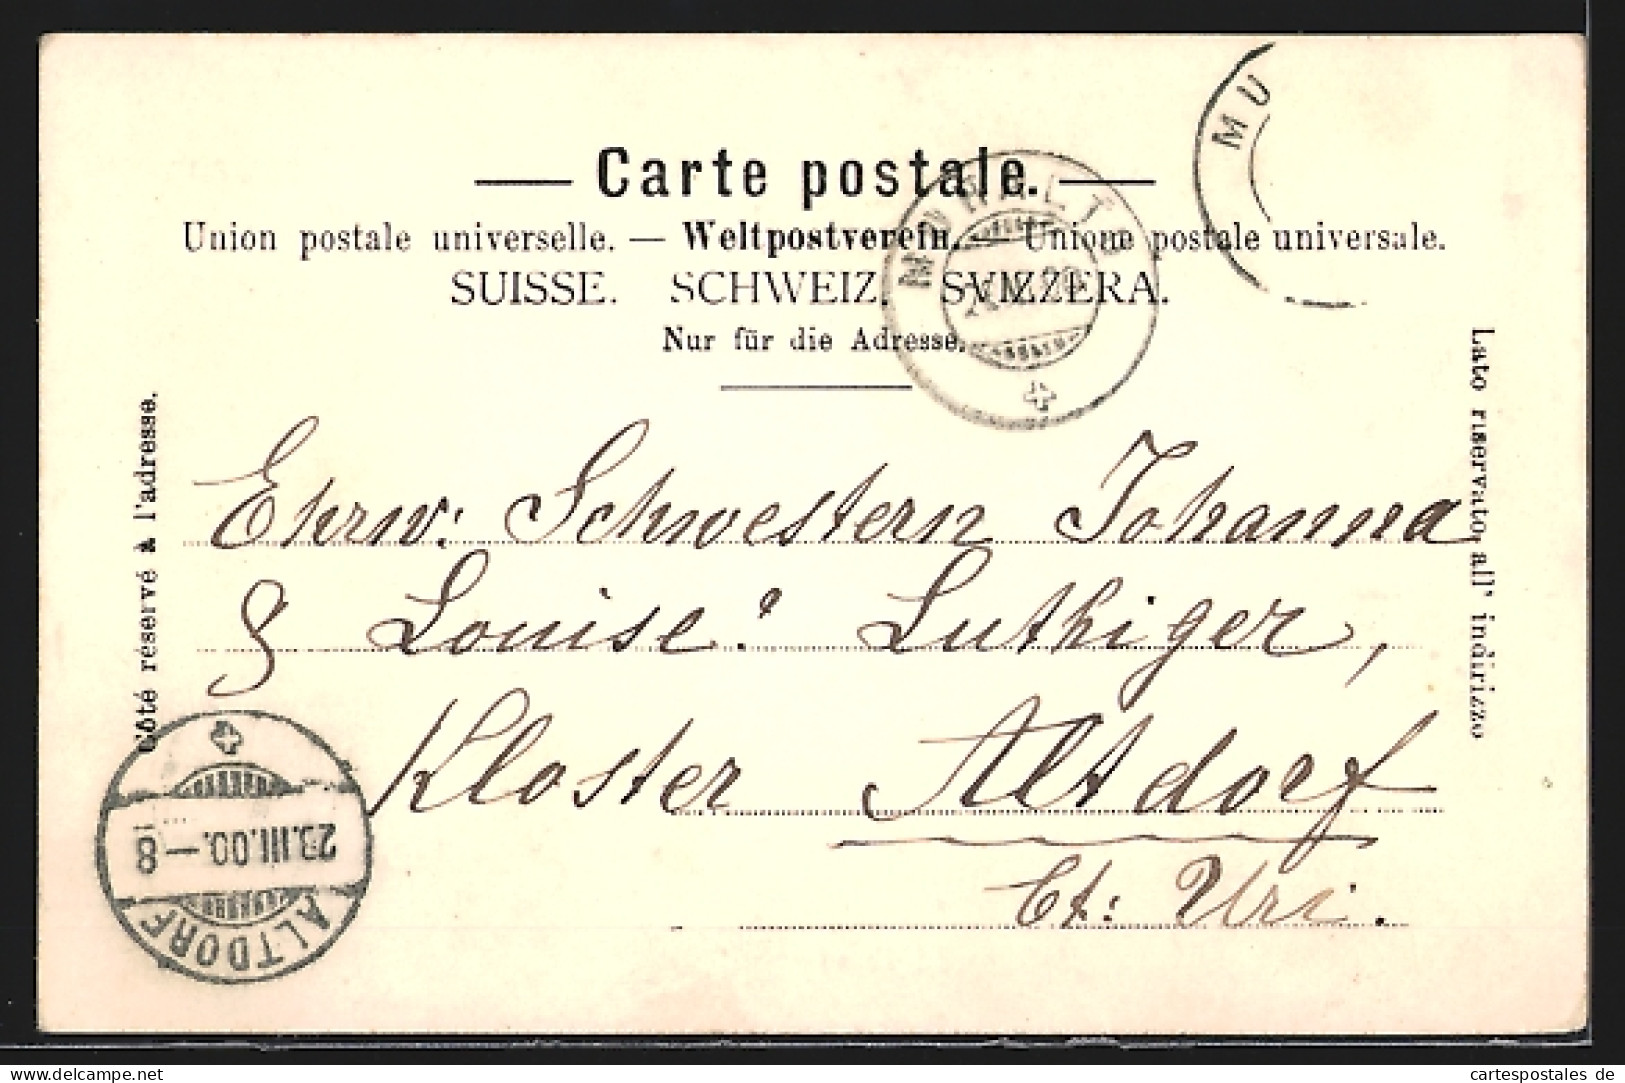 Carte postale.
Union postale universelle. — Weltpostverein. — Unione postale universale.
SUISSE. SCHWEIZ. SVIZZERA.
Nur für die Adresse.
Côté réservé à l'adresse.
Lato riservato all' indirizzo
MU
Ehrw: Schwestern Johanna
& Louise: Luthiger,
Kloster Altdorf
Ct: Uri.
ALTDORF
III.00.—8
cartespostales de